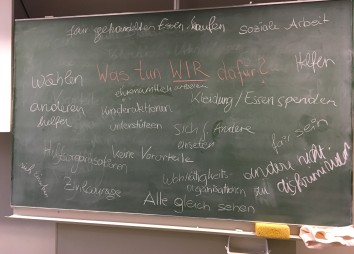 fair gehandeltes Essen kaufen
soziale Arbeit
wählen
Was tun WIR dafür?
Helfen
ehrenamtlich arbeiten
anderen
helfen
Kinderaktionen
unterstützen
Kleidung/Essen spenden
sich f. andere
einsetzen
fair sein
Hilfsorganisationen
keine Vorurteile
Wohltätigkeits-
organisationen
andere nicht
zu diskriminieren
Alle gleich sehen